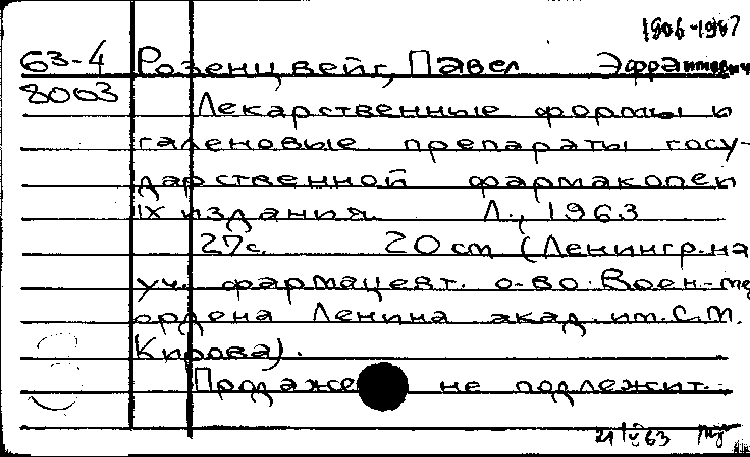 1906-1987
63-4 Розенцвейг, Павел Эфраимович
8063 Лекарственные формы и
галеновые препараты госу-
дарственной фармакопеи
IX издания. Л., 1963
27с. 20 см (Ленингр. на
уч. фармацевт. о-во. Воен.-ме
ордена Ленина акад. им. С.М.
Кирова).
Продаже не подлежит.
21 V 63